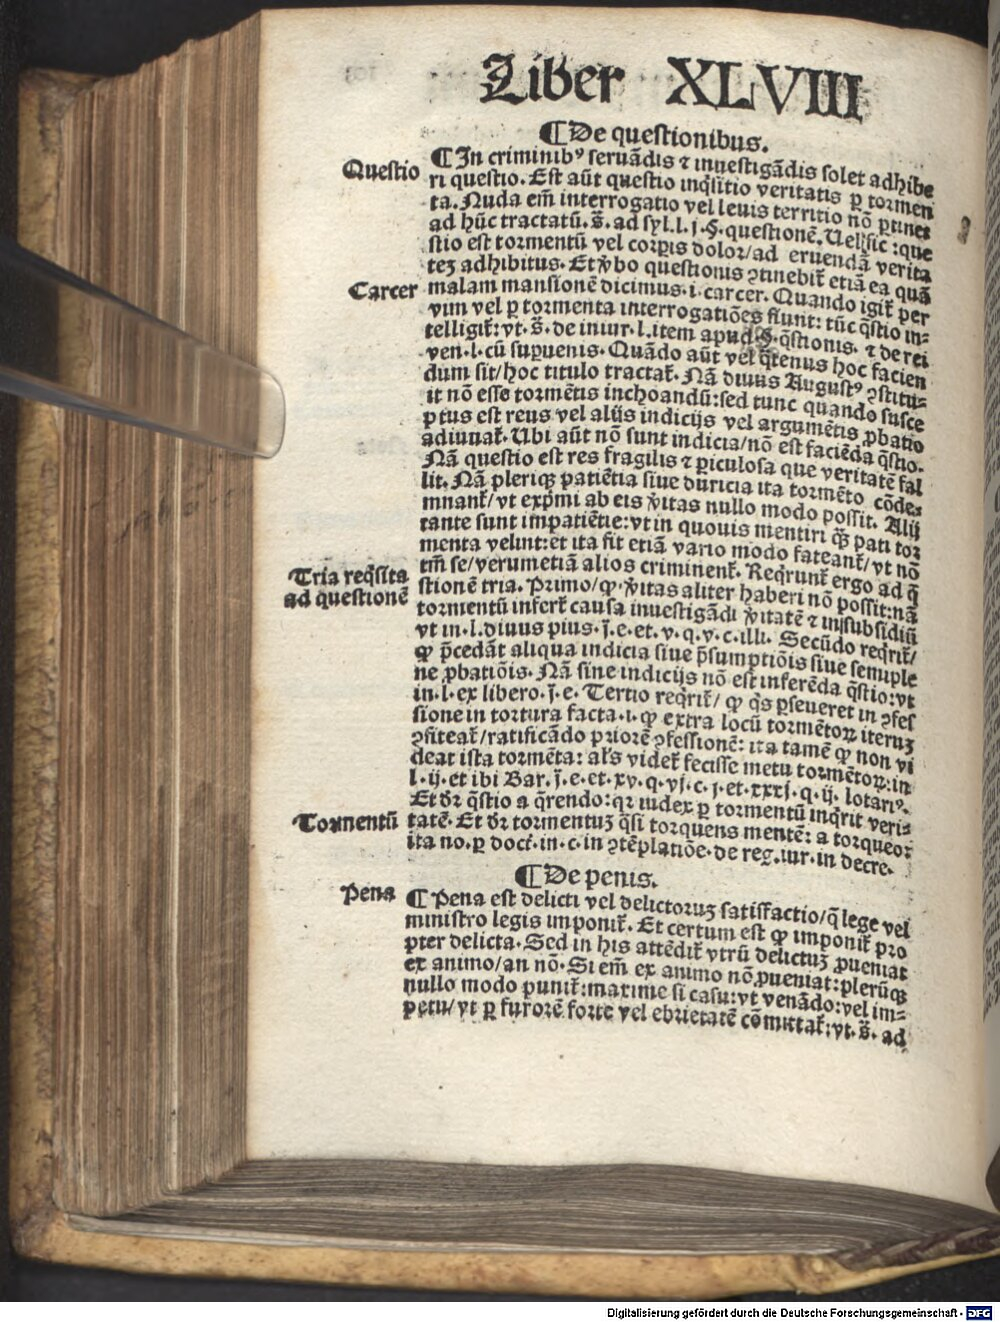 Liber XLVIII
¶De questionibus.
Questio
¶In criminibꝰ seruādis ⁊ inuestigādis solet adhibe
ri questio. Est aūt questio inq̄sitio veritatis ꝑ tormen
ta. Nuda em̄ interrogatio vel leuis territio nō ꝑtinet
ad hūc tractatū. s̄. ad syl. l. j. §. questionē. Uel sic: que
stio est tormentū vel corꝑis dolor/ad eruendā verita
tez adhibitus. Et v̄bo questionis ꝯtinebit̄ etiā ea quā
Carcer
malam mansionē dicimus. i. carcer. Quando igit̄ per
vim vel ꝑ tormenta interrogatiōes fiunt: tūc q̄stio in-
telligit̄: vt. s̄. de iniur. l. item apud. §. q̄stionis. ⁊ de rei
ven. l. cū suꝑuenis. Quādo aūt vel q̄tenus hoc facien
dum sit/hoc titulo tractat̄. Nā diuus Augustꝰ ꝯstitu-
it nō esse tormētis inchoandū: sed tunc quando susce
ptus est reus vel alijs indicijs vel argumētis ꝓbatio
adiuuat̄. Ubi aūt nō sunt indicia/nō est faciēda q̄stio.
Nā questio est res fragilis ⁊ ꝑiculosa que veritatē fal
lit. Nā pleriqꝫ patiētia siue duricia ita tormēto cōde-
mnant̄/vt exp̄mi ab eis v̄itas nullo modo possit. Alij
tante sunt impatiētie: vt in quouis mentiri q̄ꝫ pati tor
menta velint: et ita fit etiā vario modo fateant̄/vt nō
tm̄ se/verumetiā alios criminent̄. Req̄runt̄ ergo ad q̄
Tria req̄sita
ad questionē
stionē tria. Primo/ꝙ v̄itas aliter haberi nō possit: nā
tormentū infert̄ causa inuestigādi v̄itatē ⁊ in subsidiū
vt in. l. diuus pius. j̄. e. et. v. q. v. c. illi. Secūdo req̄rit̄/
ꝙ p̄cedāt aliqua indicia siue p̄sumptiōis siue semiple
ne ꝓbatiōis. Nā sine indicijs nō est inferēda q̄stio: vt
in. l. ex libero. j̄. e. Tertio req̄rit̄/ ꝙ q̄s ꝑseueret in ꝯfes
sione in tortura facta. i. ꝙ extra locū tormētoꝝ iteruꝫ
ꝯfiteat̄/ratificādo priorē ꝯfessionē: ita tamē ꝙ non vi
deat ista tormēta: al̄s videt̄ fecisse metu tormētoꝝ: in
l. ij. et ibi Bar. j̄. e. et. xv. q. vj. c. j. et. xxxj. q. ij. lotariꝰ.
Et dr̄ q̄stio a q̄rendo: qꝛ iudex ꝑ tormentū inq̄rit veri-
Tormentū
tatē. Et dr̄ tormentuꝫ q̄si torquens mentē: a torqueo:
ita no. ꝑ doct̄. in. c. in ꝯtēplatiōe. de reg. iur. in decre.
¶De penis.
Pena
¶Pena est delicti vel delictoruꝫ satisfactio/q̄ lege vel
ministro legis imponit̄. Et certum est ꝙ imponit̄ pro
pter delicta. Sed in his attēdit̄ vtrū delictuꝫ ꝓueniat
ex animo/an nō. Si em̄ ex animo nō ꝓueniat: plerūqꝫ
nullo modo punit̄: maxime si casu: vt venādo: vel im-
petu/vt ꝑ furorē forte vel ebrietatē cōmittat̄: vt. s̄. ad
Digitalisierung gefördert durch die Deutsche Forschungsgemeinschaft - DFG